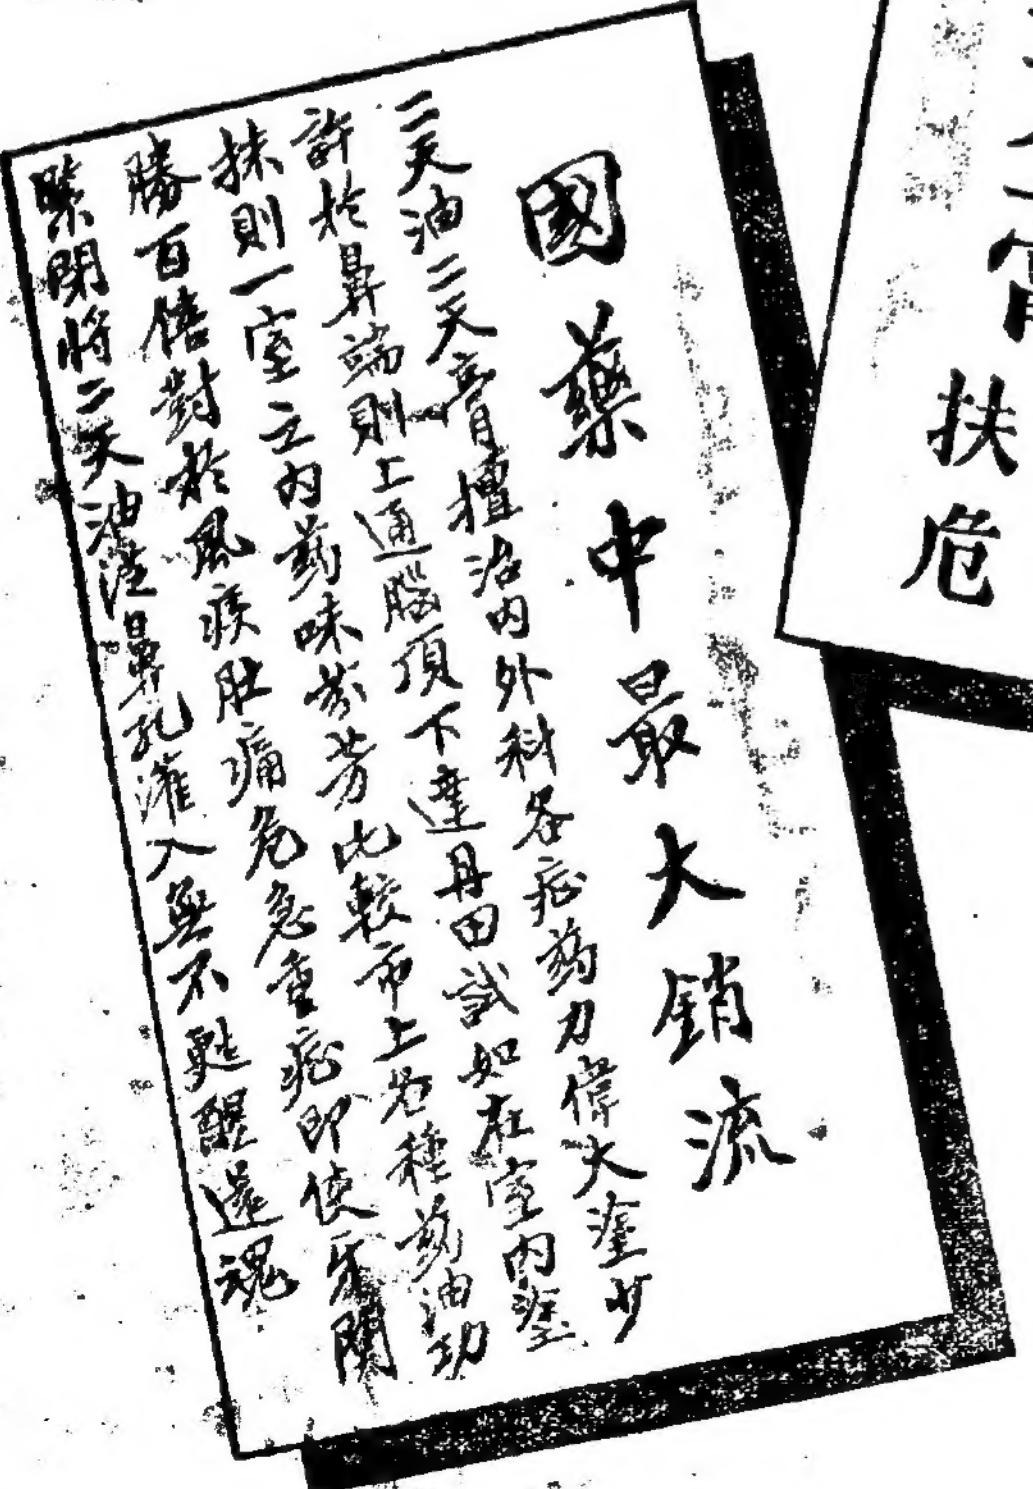 國藥中最大銷流
二天油二天膏擅治內外科各症药力偉大塗少
許於鼻端則上通腦頂下達丹田試如在室內塗
抹則一室之內药味芬芳比較市上各種药油功
勝百倍對於風痰肚痛危急重症即使牙關
緊閉將二天油塗鼻孔灌入無不甦醒還魂
扶危